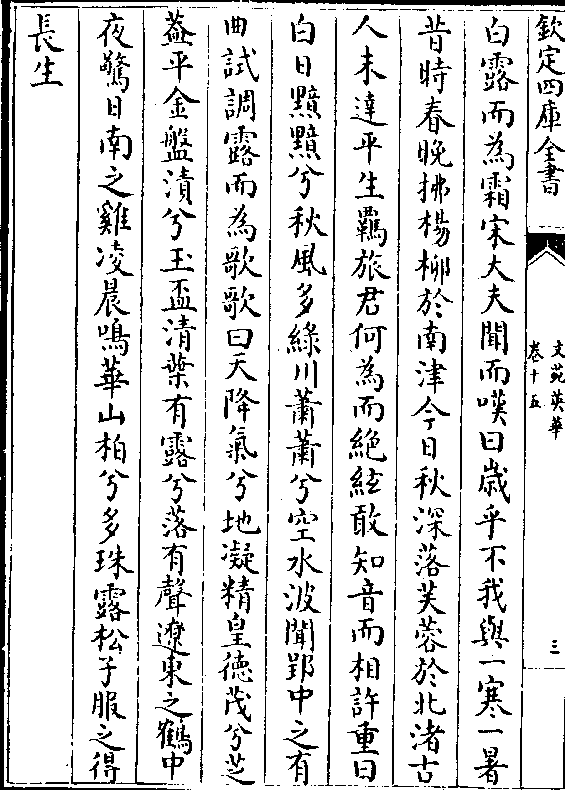 欽定四庫全書
文苑英華
卷十五
三
白露而為霜宋大夫聞而嘆曰歳乎不我與一寒一暑
昔時春晚拂楊柳於南津今日秋深落芙蓉於北渚古
人未達平生羈旅君何為而絶絃敢知音而相許重曰
白日黯黯兮秋風多緑川蕭蕭兮空水波聞郢中之有
曲試調露而為歌歌曰天降氣兮地凝精皇徳茂兮芝
葢平金盤漬兮玉盃清葉有露兮落有聲遼東之鶴中
夜驚日南之雞凌晨鳴華山柏兮多珠露松子服之得
長生